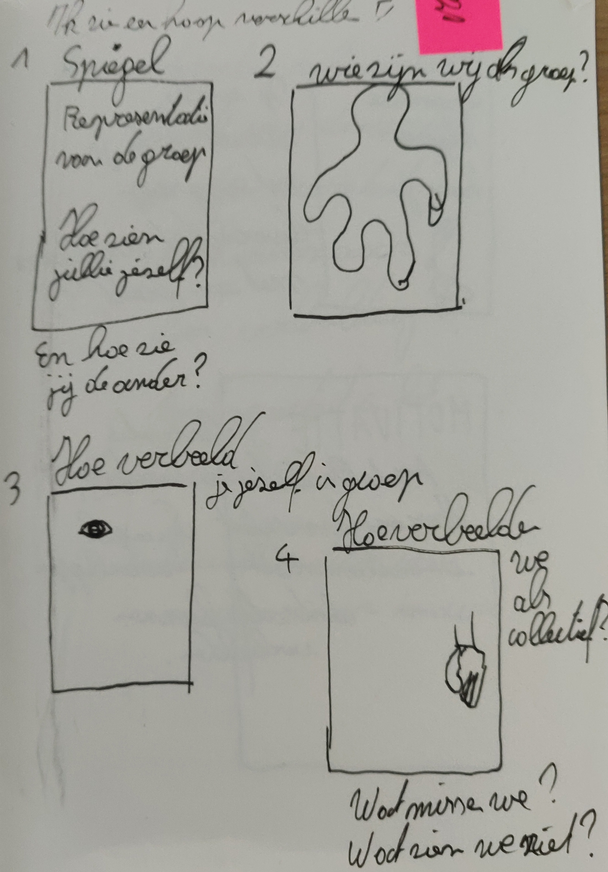 Ik zie een hoop verschillen
1 Spiegel
Representatie
van de groep
Hoe zien
jullie jezelf?
En hoe zie
jij de ander?
2 wie zijn wij als groep?
3 Hoe verbeeld
je jezelf in groep
4 Hoe verbeelde
we
als
collectief?
Wat missen we?
Wat zien we niet?